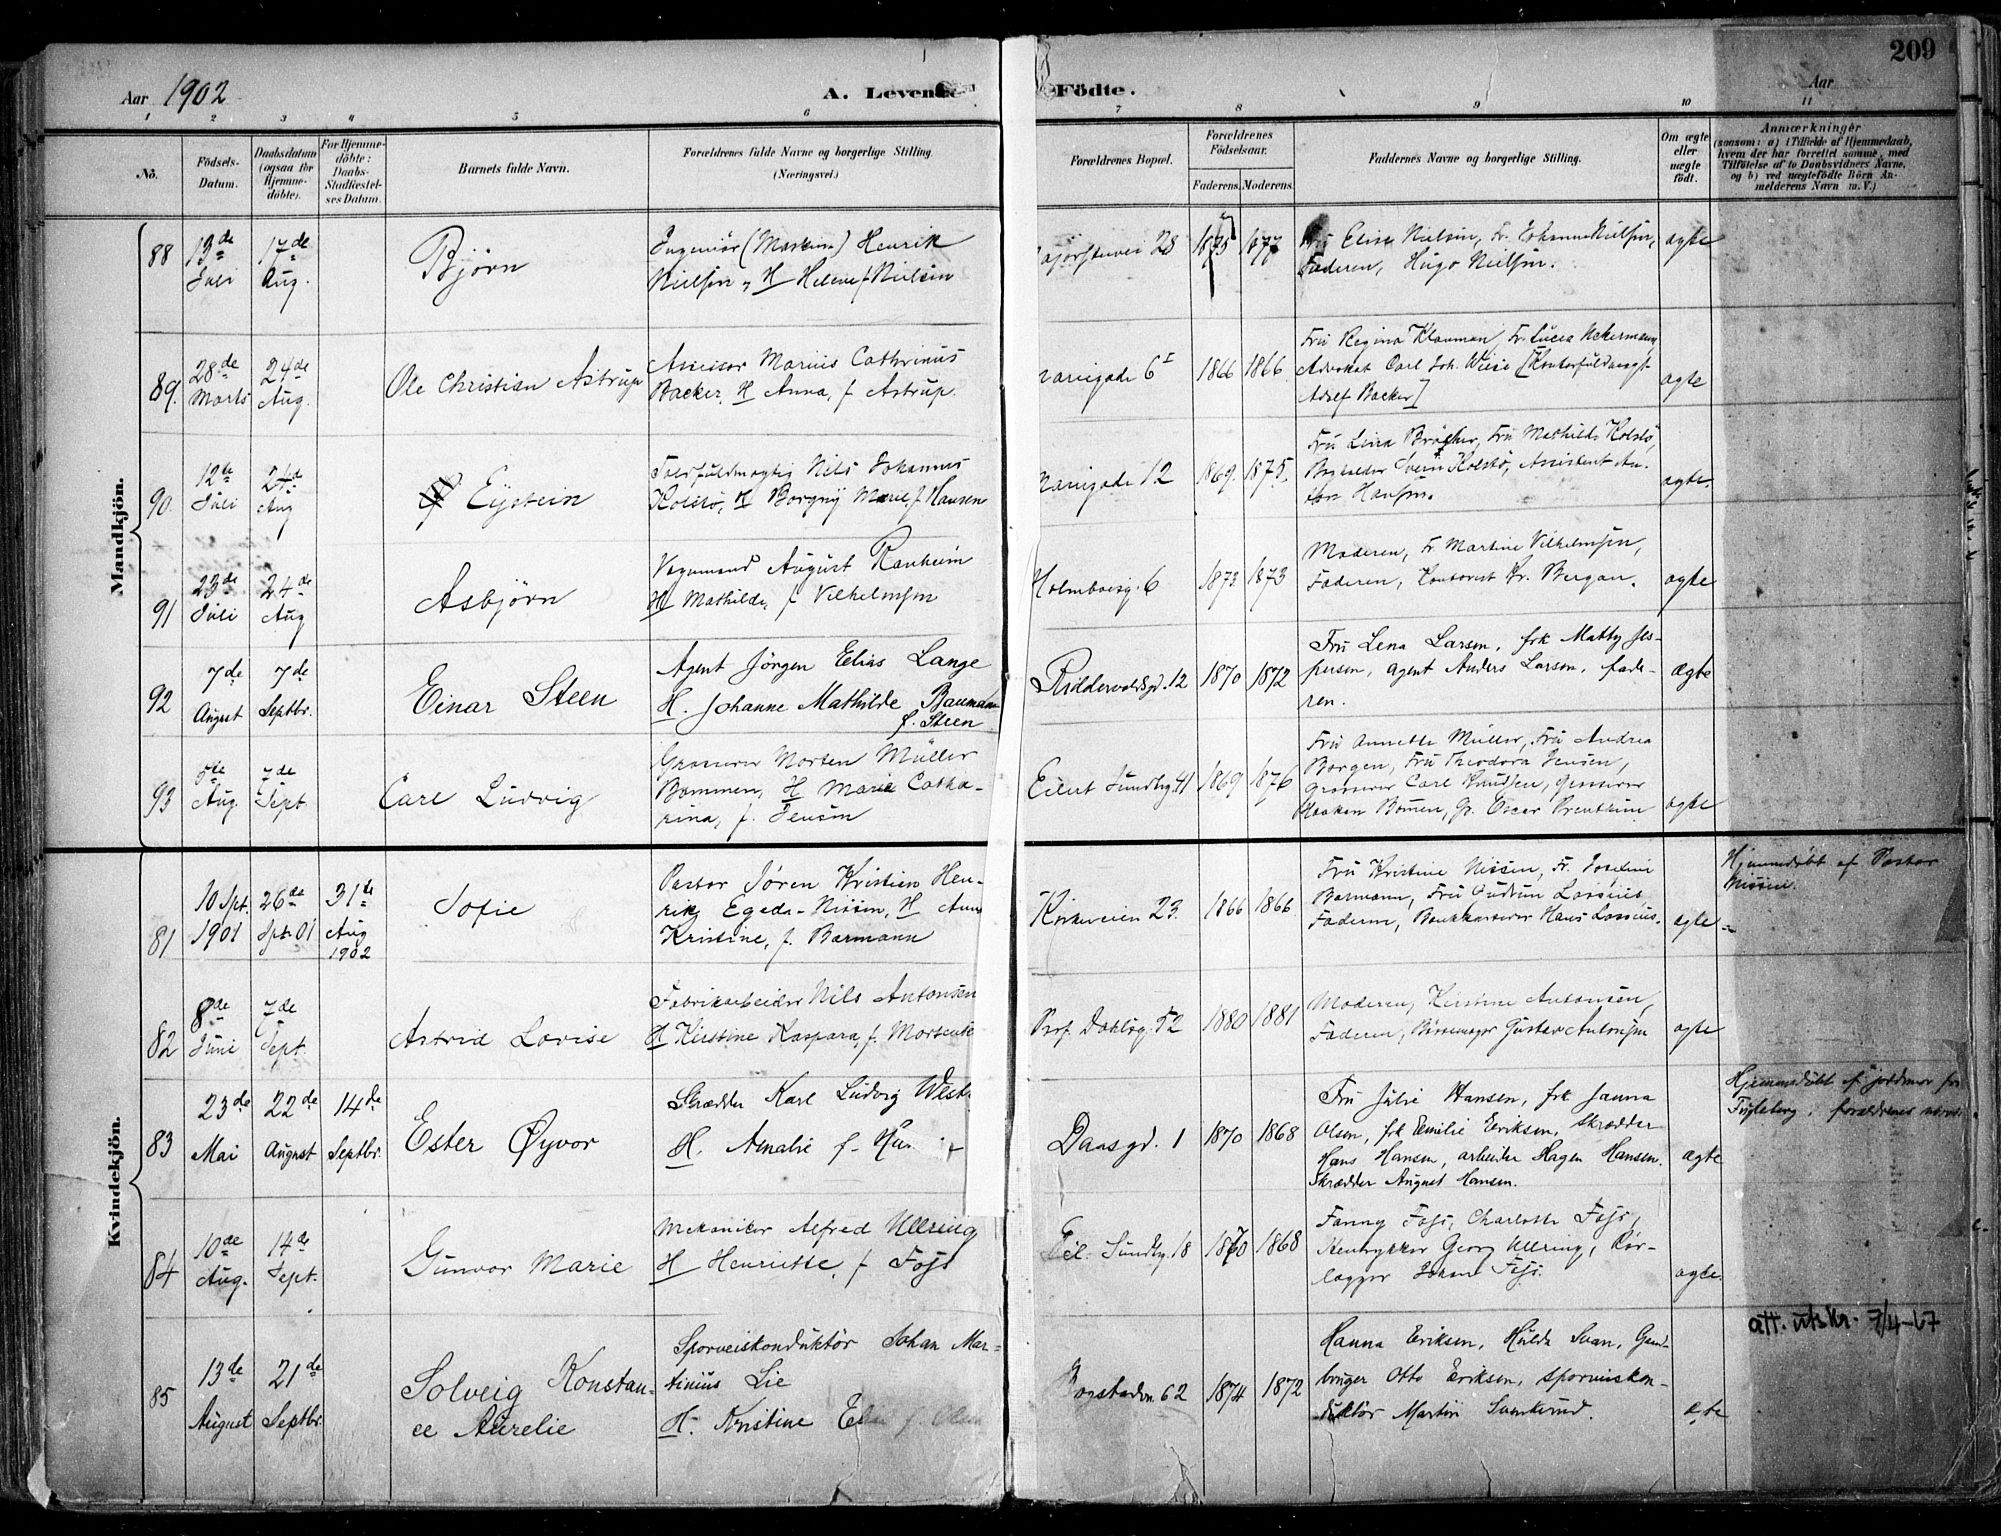 209
Aar 1902
A. Levende Födte.
Aar
1 2 3 4 5 6 7 8 9 10 11
No.
Födsels-
Datum.
Daabsdatum
(ogsaa for
Hjemme-
döbte).
For Hjemme-
döbte:
Daabs-
Stadfæstel-
ses Datum.
Barnets fulde Navn.
Forældrenes fulde Navne og borgerlige Stilling.
(Næringsvei.)
Forældrenes Bopæl.
Forældrenes
Födselsaar.
Faderens. Moderens.
Faddernes Navne og borgerlige Stilling.
Om ægte
eller
uægte
født.
Anmærkninger
(saasom: a) i Tilfælde af Hjemmedaab,
hvem der har forrettet samme, med
Tilföielse af to Daabsvidners Navne,
og b) ved uægtefödte Börn An-
melderens Navn m. V.)
Mandkjön.
88
13de
Juli
17de
Aug.
Björn
Ingeniör (Maskin) Henrik
Nielsen, H Helene f Nielsen
28
1875
1877
Fru Elise Nielsen, Fr. Johanne Nielsen,
Faderen, Hugo Nielsen.
ægte
89.
28de
Marts
24de
Aug.
Ole Christian Astrup
Assessor Marius Cathrinus
Backer, H Anna, f. Astrup.
6 I
1866
1866.
Fru Regina Klouman, Fr. Lucia
Advokat Carl Joh. Wiese [Kontorfuldmægt.
Adolf Backer]
ægte
90.
12te
Juli
24de
Aug
Eystein
Nils Johannes
Kolstö, H Borgny Marie f. Hansen
12
1869.
1875.
Fru Lina Fru Mathilde Kolstö,
Kolstö, Assistent An-
Hansen.
ægte.
91
23de
Juli
24de
Aug
Asbjörn
Vognmand August Ranheim
H Mathilde, f Vilhelmsen
Holmboesg. 6
1873
1873
Moderen, Fr Martine Vilhelmsen,
Faderen, Kontorist Kr. Bergan.
ægte
92
7de
August
7de
Septbr.
Einar Steen
Agent Jörgen Elias Lange
H. Johanne Mathilde Baumann
f. Steen
Riddervoldsgd. 12
1870
1872
Fru Lena Larsen, frk Matty Jes-
persen, agent Anders Larsen, fade-
ren.
ægte
93
5te
Aug.
7de
Sept.
Carl Ludvig
Grosserer Morten Müller
Bommen, H Marie Catha-
rina, f. Jensen
Eilert Sundtsg. 41
1869
1876
Fru Annette Müller, Fru Andrea
Borgen, Fru Theodora Jensen,
Grosserer Carl Knudsen, Grosserer
Haaken Bomen, Gr. Oscar
ægte
Kvindekjön.
81
10 Spt.
1901
26de
Spt. 01
31te
Aug
1902
Sofie
Pastor Sören Kristian Hen-
rik Egede-Nissen, H Anna
Kristine, f. Barmann
Kirkeveien 23.
1866
1866
Fru Kristine Nissen, Fr. Josefine
Barmann, Fru Gudrun Lossius,
Faderen, Bankkasserer Hans Lossius.
ægte
Hjemmedöbt af Pastor
Nissen.
82
8de
Juni
7de
Sept.
Astrid Lovise
Fabrikarbeider Nils Antonsen
H Kirstine Kaspara, f. Mortensen
Prof. Dahlsg. 52
1880
1881
Moderen, Kirstine Antonsen,
Faderen, Gustav Antonsen
ægte
83
23de
Mai
22de
August
14de
Septbr.
Ester Øyvor
Skrædder Karl Ludvig West
H. Amalie f.
Daasgd. 1
1870
1868
Fru Julie Hansen, frk Janna
Olsen, frk Emilie Eriksen, Skrædder
Hans Hansen, arbeider Hagen Hansen.
Skrædder August Hansen.
ægte
Hjemmedöbt af jordmor fru
Fugleberg, forældrenes
84
10de
Aug.
14de
Sept.
Gunvor Marie
Mekaniker Alfred Ullring
H Henriette, f Fojs
Eil. Sundtsg. 18
1870
1868
Fanny Fojs, Charlotte Fojs,
Stentrykker Georg Ullring, Rör-
lægger Johan Fojs.
ægte.
85
13de
August
21de
Septbr.
Solveig Konstan-
ce Aurelie
Sporveiskonduktör Johan Mar-
tinius Lie
H. Kristine
Bogstadvn. 62
1874
1872
Hanna Eriksen, Hulda Svan, Gaard-
bruger Otto Eriksen, sporveiskon-
duktör Martin
ægte
att. utskr. 7/4-67